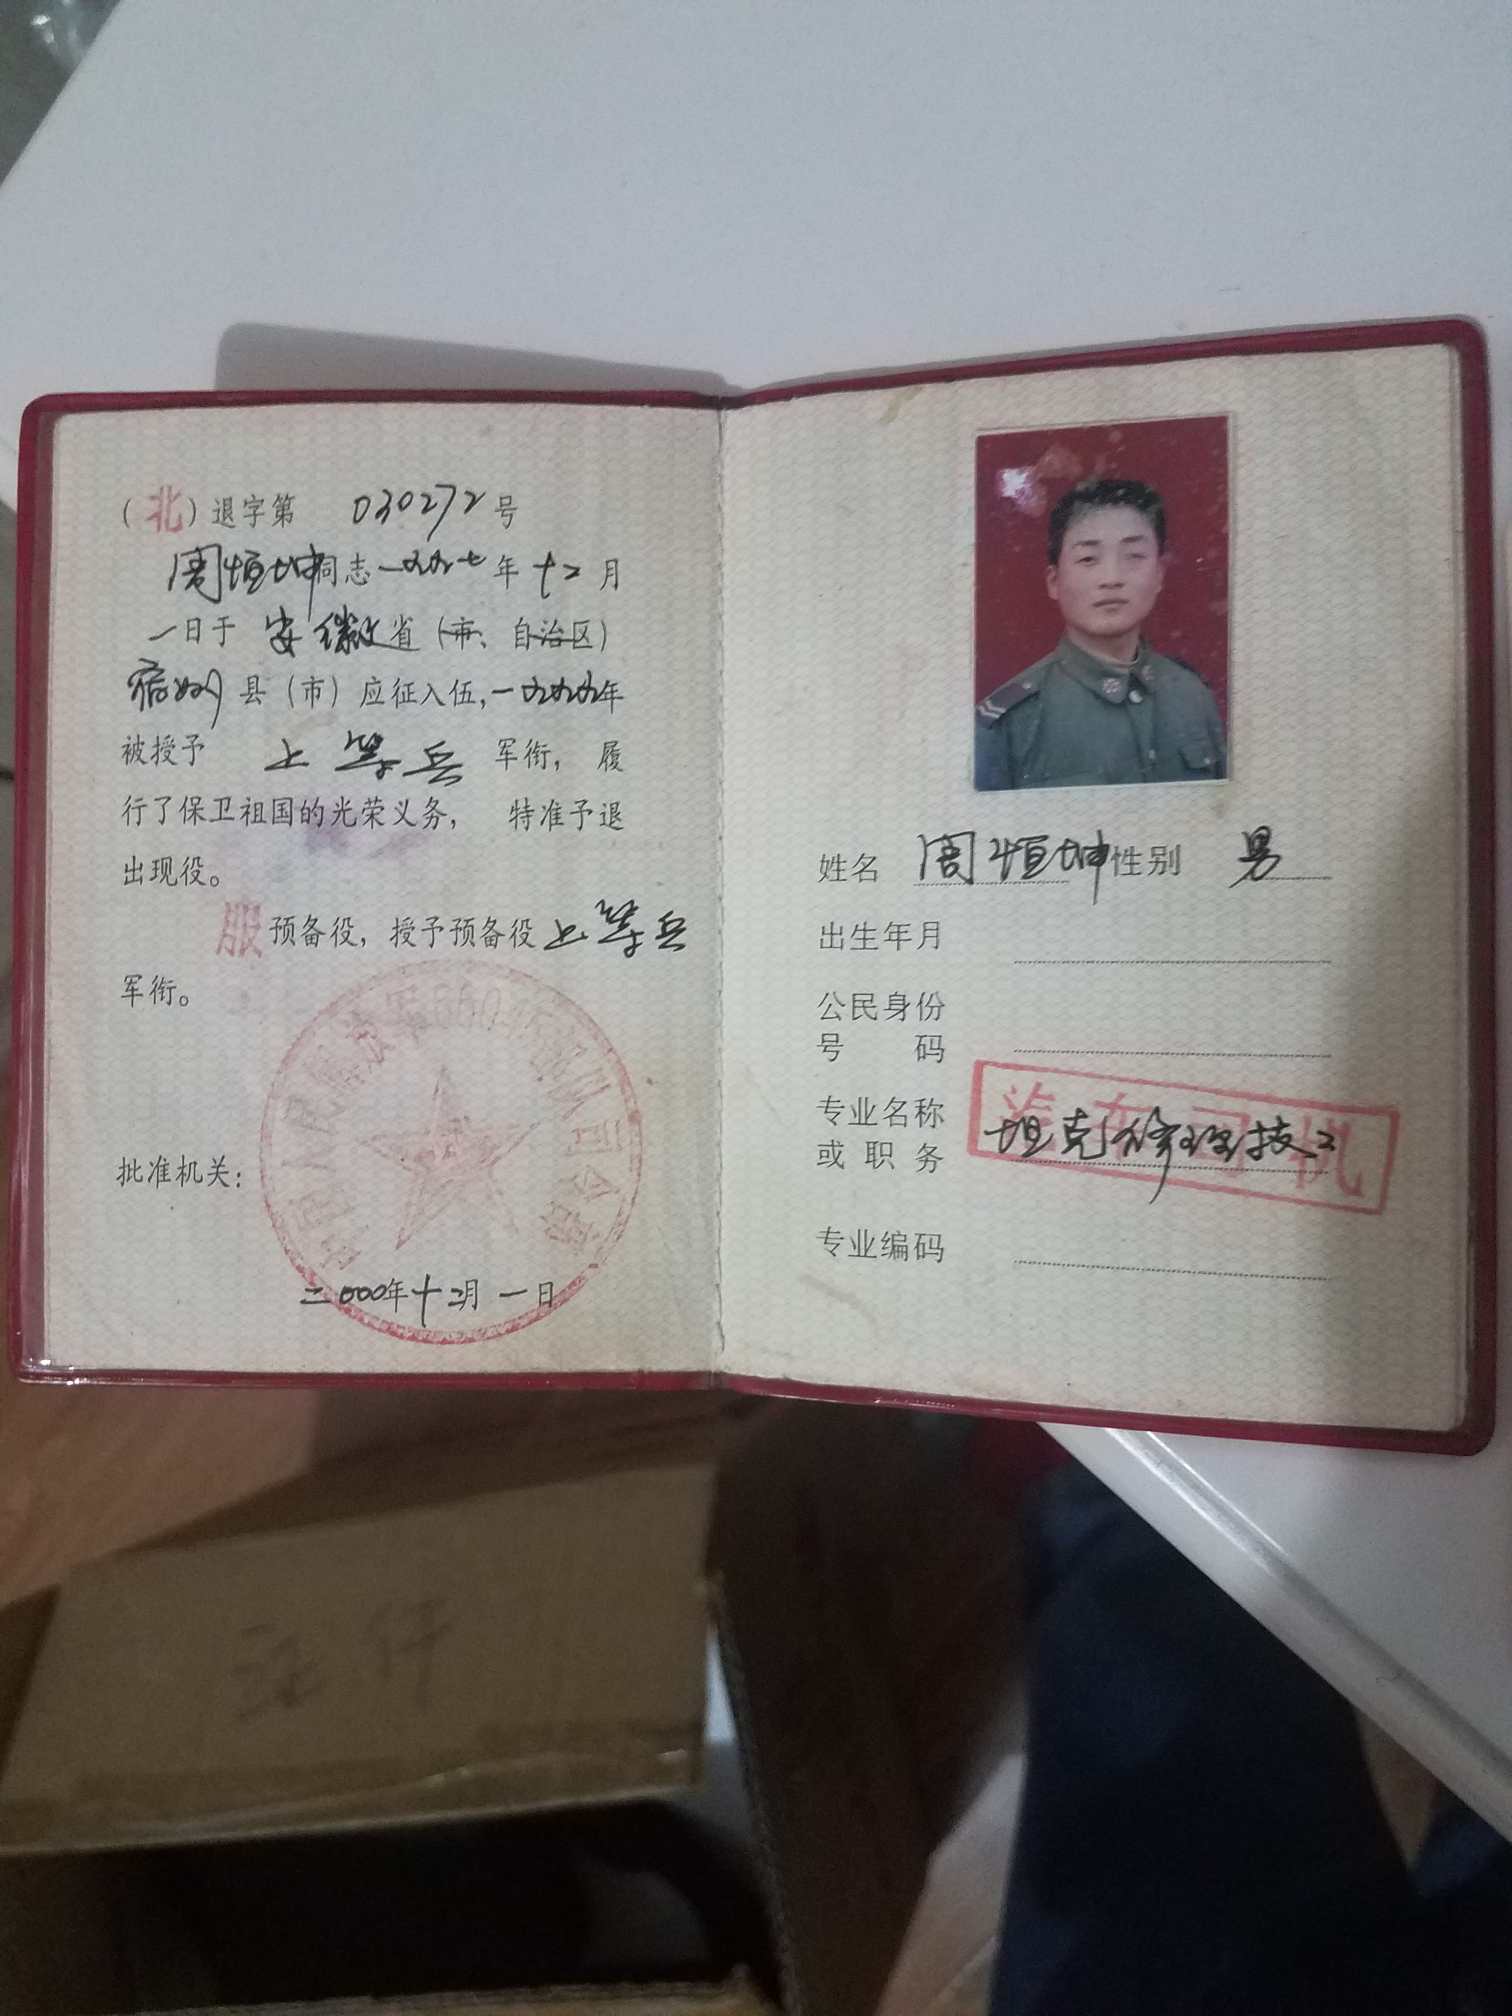 (北)退字第 030272 号
周恒坤同志一九九七年十二月
一日于 安徽省(市、自治区)
宿州县(市)应征入伍,一九九九年
被授予 上等兵 军衔, 履
行了保卫祖国的光荣义务, 特准予退
出现役。
服预备役,授予预备役上等兵
军衔。
中国人民解放军部队司令部
批准机关:
二000年十二月一日
姓名 周恒坤 性别 男
出生年月
公民身份
号码
专业名称
或职务 坦克修理技工
汽车司机
专业编码